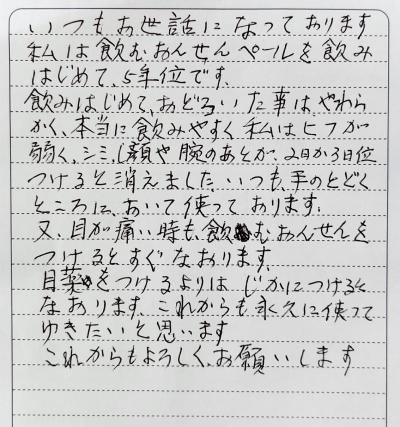 いつもお世話になっております
私は飲むおんせんペールを飲み
はじめて、5年位です、
飲みはじめて、おどろいた事は、やわら
かく、本当に飲みやすく私はヒフが
弱く、シミ、(顔や腕のあとが、2日か3日位
つけると消えました、いつも、手のとどく
ところに、おいて使っております、
又、目が痛い時も、飲むおんせんを
つけるとすぐなおります、
目薬をつけるよりは じかにつけると
なおります、これからも永久に使って
ゆきたいと思います
これからもよろしく、お願いします